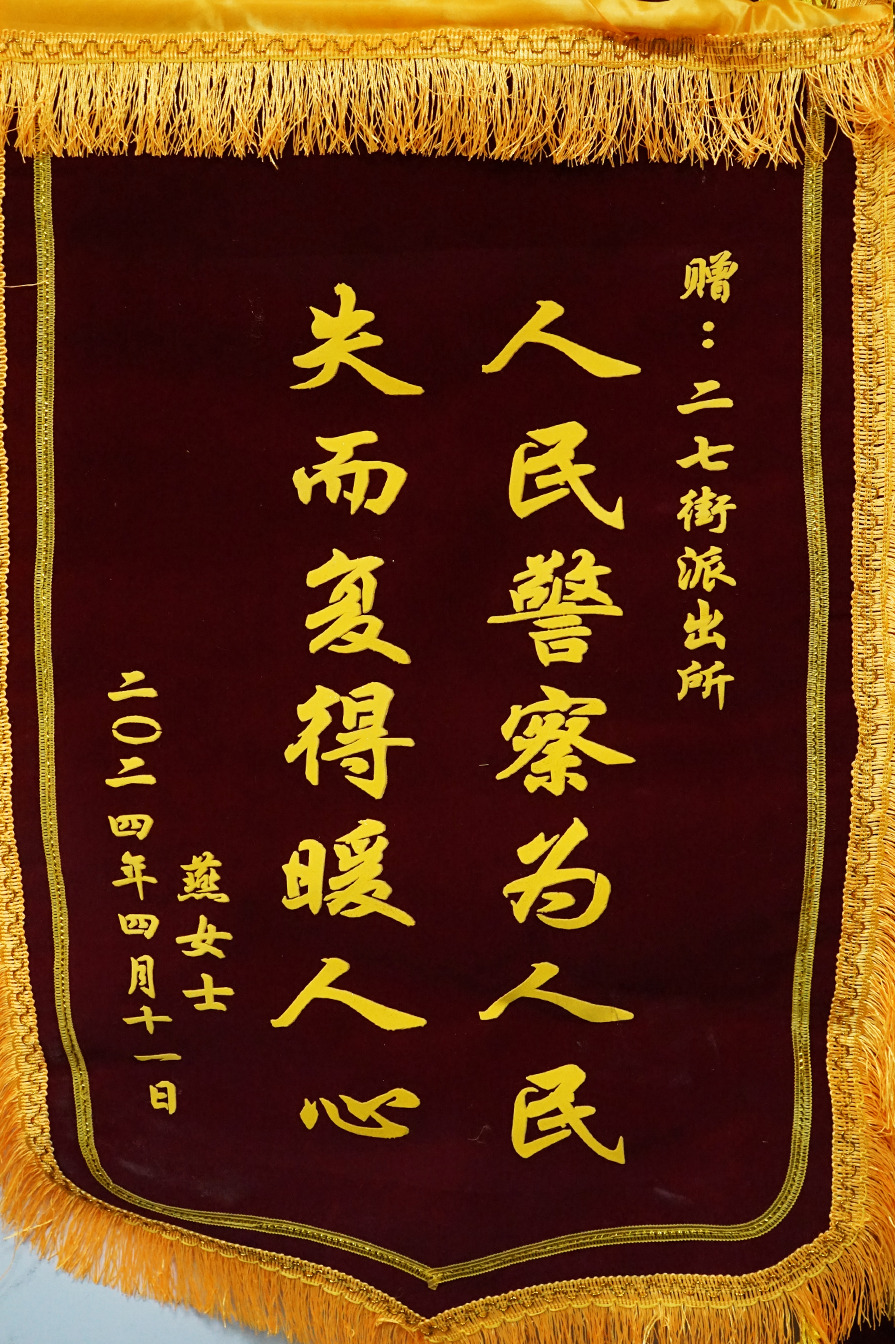 赠：二七街派出所
人民警察为人民
失而复得暖人心
燕女士
二〇二四年四月十一日